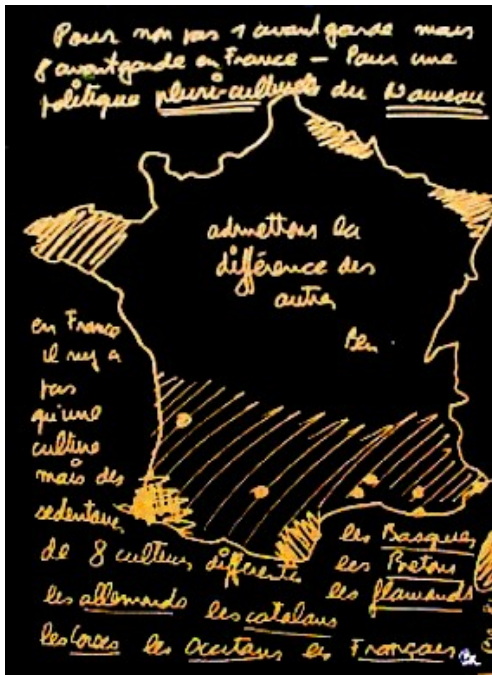 Pour non pas 1 avant garde mais
8 avantgarde en France — Pour une
politique pluri-culturelle du Nouveau
admettons la
différence des
autres
Ben.
en France
il n'y a
pas
qu'une
culture
mais des
de 8 cultures différentes
les Basques
les Bretons
les flamands
les allemands les catalans
les Corses les Occitans les Français